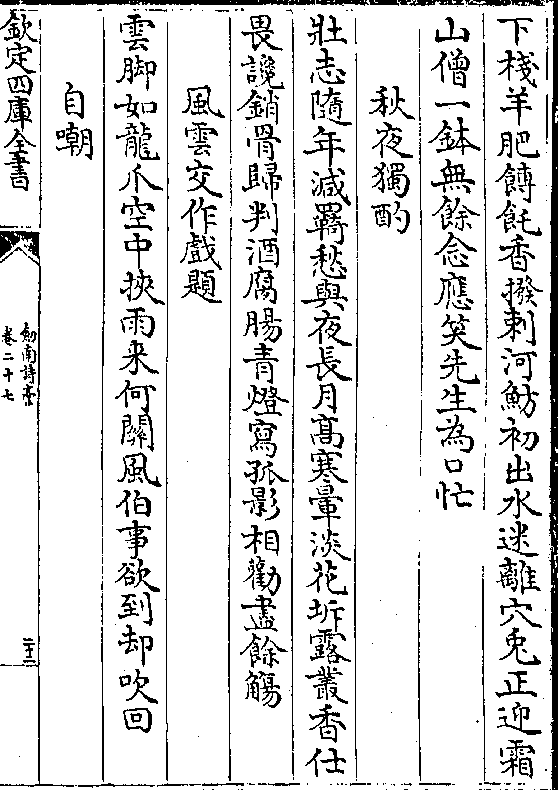 下棧羊肥餺飥香撥剌河魴初出水迷離穴兎正迎霜
山僧一鉢無餘念應笑先生為口忙
秋夜獨酌
壯志隨年減羇愁與夜長月髙寒暈淡花坼露叢香仕
畏讒銷骨歸判酒腐腸青燈寫孤影相勸盡餘觴
風雲交作戲題
雲脚如龍爪空中挾雨来何關風伯事欲到却吹回
自嘲
欽定四庫全書
劍南詩藁
卷二十七